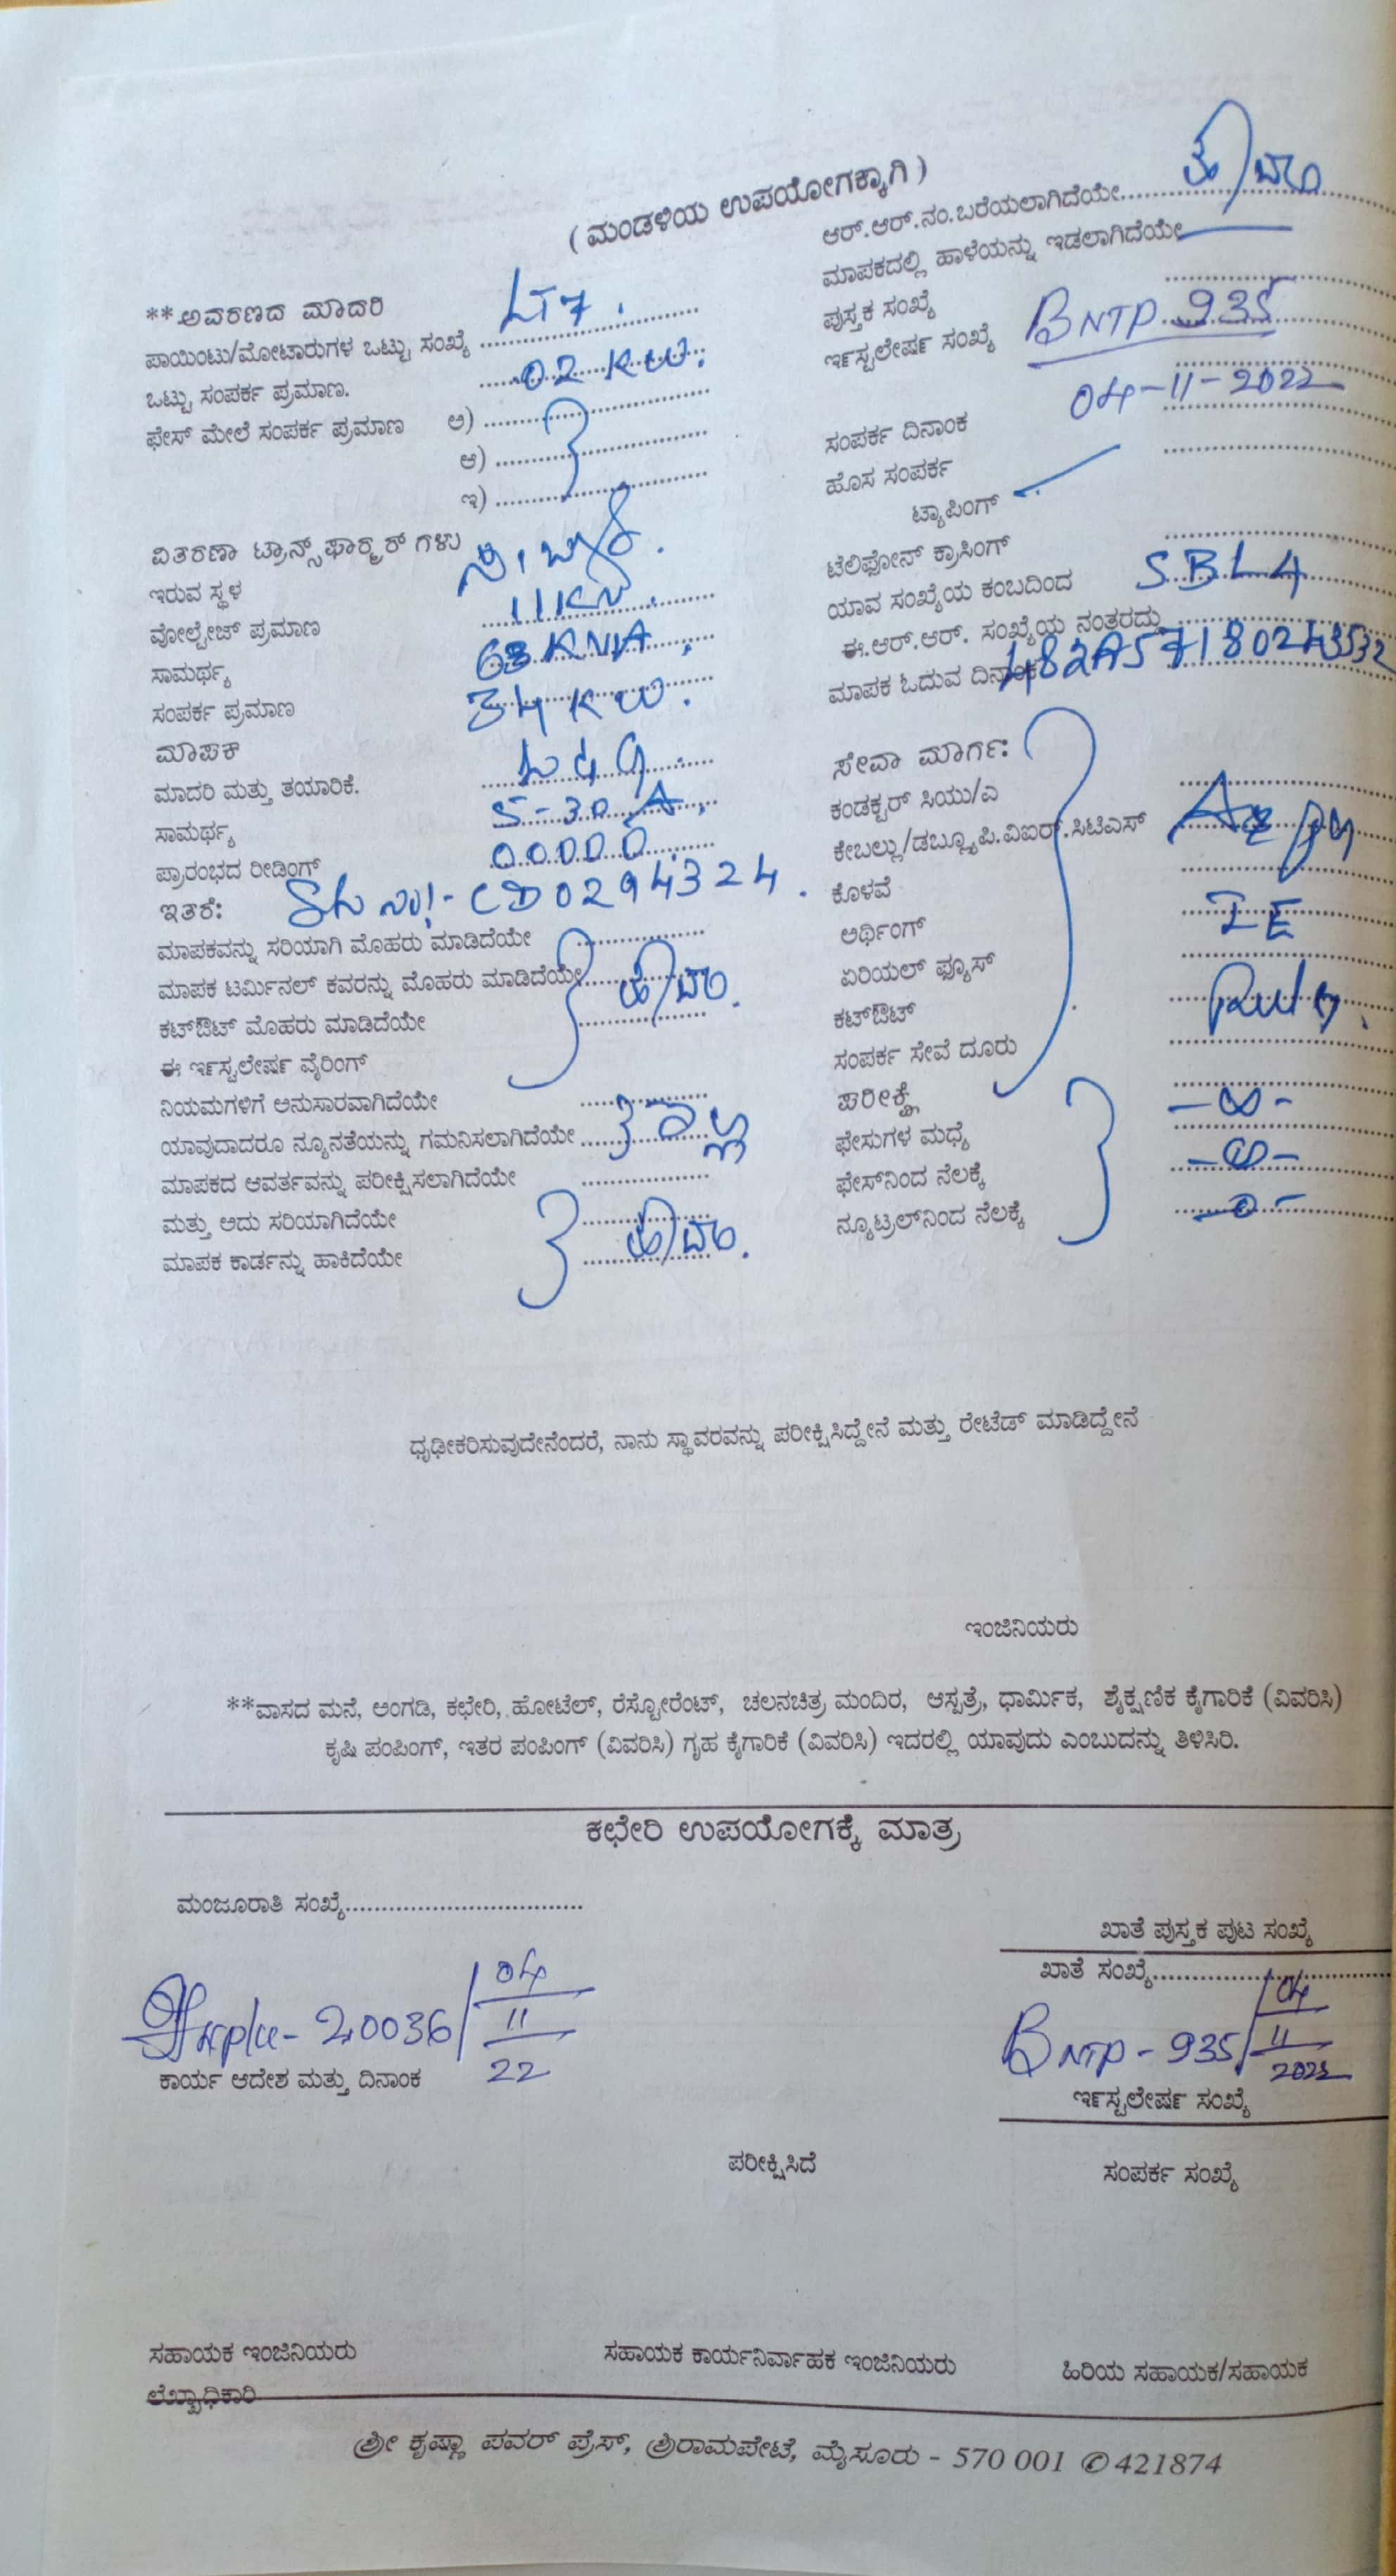 ( ಮಂಡಳಿಯ ಉಪಯೋಗಕ್ಕಾಗಿ )
**ಅವರಣದ ಮಾದರಿ
ಪಾಯಿಂಟು/ಮೋಟಾರುಗಳ ಒಟ್ಟು ಸಂಖ್ಯೆ LT7.
ಒಟ್ಟು ಸಂಪರ್ಕ ಪ್ರಮಾಣ. 02 KW.
ಫೇಸ್ ಮೇಲೆ ಸಂಪರ್ಕ ಪ್ರಮಾಣ ಅ)
ಆ)
ಇ)
ವಿತರಣಾ ಟ್ರಾನ್ಸ್‌ಫಾರ್‍ಮರ್ ಗಳು
ಇರುವ ಸ್ಥಳ
ವೋಲ್ಟೇಜ್ ಪ್ರಮಾಣ 11KV.
ಸಾಮರ್ಥ್ಯ 63 KVA.
ಸಂಪರ್ಕ ಪ್ರಮಾಣ 34 KW.
ಮಾಪಕ
ಮಾದರಿ ಮತ್ತು ತಯಾರಿಕೆ. L&G.
ಸಾಮರ್ಥ್ಯ 5-30 A.
ಪ್ರಾರಂಭದ ರೀಡಿಂಗ್ 00000.
ಇತರೆ: CD0294324.
ಮಾಪಕವನ್ನು ಸರಿಯಾಗಿ ಮೊಹರು ಮಾಡಿದೆಯೇ
ಮಾಪಕ ಟರ್ಮಿನಲ್ ಕವರನ್ನು ಮೊಹರು ಮಾಡಿದೆಯೇ ಹೌದು.
ಕಟ್‌ಔಟ್ ಮೊಹರು ಮಾಡಿದೆಯೇ
ಈ ಇನ್ಸ್ಟಲೇಷನ್ ವೈರಿಂಗ್
ನಿಯಮಗಳಿಗೆ ಅನುಸಾರವಾಗಿದೆಯೇ
ಯಾವುದಾದರೂ ನ್ಯೂನತೆಯನ್ನು ಗಮನಿಸಲಾಗಿದೆಯೇ ಇಲ್ಲ
ಮಾಪಕದ ಆವರ್ತವನ್ನು ಪರೀಕ್ಷಿಸಲಾಗಿದೆಯೇ
ಮತ್ತು ಅದು ಸರಿಯಾಗಿದೆಯೇ ಹೌದು.
ಮಾಪಕ ಕಾರ್ಡನ್ನು ಹಾಕಿದೆಯೇ
ಆರ್.ಆರ್.ನಂ.ಬರೆಯಲಾಗಿದೆಯೇ ಹೌದು
ಮಾಪಕದಲ್ಲಿ ಹಾಳೆಯನ್ನು ಇಡಲಾಗಿದೆಯೇ
ಪುಸ್ತಕ ಸಂಖ್ಯೆ
ಇನ್ಸ್ಟಲೇಷನ್ ಸಂಖ್ಯೆ BNTP 935
ಸಂಪರ್ಕ ದಿನಾಂಕ 04-11-2022
ಹೊಸ ಸಂಪರ್ಕ
ಟ್ಯಾಪಿಂಗ್
ಟೆಲಿಫೋನ್ ಕ್ರಾಸಿಂಗ್
ಯಾವ ಸಂಖ್ಯೆಯ ಕಂಬದಿಂದ SBL4
ಈ.ಆರ್.ಆರ್. ಸಂಖ್ಯೆಯ ನಂತರದ್ದು
ಮಾಪಕ ಓದುವ ದಿನಾಂಕ
ಸೇವಾ ಮಾರ್ಗ:
ಕಂಡಕ್ಟರ್ ಸಿಯು/ಎ
ಕೇಬಲ್ಲು/ಡಬ್ಲ್ಯೂಪಿ.ವಿಐರ್.ಸಿಟಿಎಸ್ As per
ಕೊಳವೆ
ಅರ್ಥಿಂಗ್ IE
ಏರಿಯಲ್ ಫ್ಯೂಸ್
ಕಟ್‌ಔಟ್ Rules.
ಸಂಪರ್ಕ ಸೇವೆ ದೂರು
ಪರೀಕ್ಷೆ
ಫೇಸುಗಳ ಮಧ್ಯೆ -∞-
ಫೇಸ್‌ನಿಂದ ನೆಲಕ್ಕೆ -∞-
ನ್ಯೂಟ್ರಲ್‌ನಿಂದ ನೆಲಕ್ಕೆ -0-
ಧೃಢೀಕರಿಸುವುದೇನೆಂದರೆ, ನಾನು ಸ್ಥಾವರವನ್ನು ಪರೀಕ್ಷಿಸಿದ್ದೇನೆ ಮತ್ತು ರೇಟೆಡ್ ಮಾಡಿದ್ದೇನೆ
ಇಂಜಿನಿಯರು
**ವಾಸದ ಮನೆ, ಅಂಗಡಿ, ಕಛೇರಿ, ಹೋಟೆಲ್, ರೆಸ್ಟೋರೆಂಟ್, ಚಲನಚಿತ್ರ ಮಂದಿರ, ಆಸ್ಪತ್ರೆ, ಧಾರ್ಮಿಕ, ಶೈಕ್ಷಣಿಕ ಕೈಗಾರಿಕೆ (ವಿವರಿಸಿ)
ಕೃಷಿ ಪಂಪಿಂಗ್, ಇತರ ಪಂಪಿಂಗ್ (ವಿವರಿಸಿ) ಗೃಹ ಕೈಗಾರಿಕೆ (ವಿವರಿಸಿ) ಇದರಲ್ಲಿ ಯಾವುದು ಎಂಬುದನ್ನು ತಿಳಿಸಿರಿ.
ಕಛೇರಿ ಉಪಯೋಗಕ್ಕೆ ಮಾತ್ರ
ಮಂಜೂರಾತಿ ಸಂಖ್ಯೆ
ಖಾತೆ ಪುಸ್ತಕ ಪುಟ ಸಂಖ್ಯೆ
ಖಾತೆ ಸಂಖ್ಯೆ
20036/04/11/22
BNTP-935/04/11/2022
ಕಾರ್ಯ ಆದೇಶ ಮತ್ತು ದಿನಾಂಕ
ಇನ್ಸ್ಟಲೇಷನ್ ಸಂಖ್ಯೆ
ಪರೀಕ್ಷಿಸಿದೆ
ಸಂಪರ್ಕ ಸಂಖ್ಯೆ
ಸಹಾಯಕ ಇಂಜಿನಿಯರು ಸಹಾಯಕ ಕಾರ್ಯನಿರ್ವಾಹಕ ಇಂಜಿನಿಯರು ಹಿರಿಯ ಸಹಾಯಕ/ಸಹಾಯಕ
ಲೆಖ್ಖಾಧಿಕಾರಿ
ಶ್ರೀ ಕೃಷ್ಣಾ ಪವರ್ ಪ್ರೆಸ್, ಶ್ರೀರಾಮಪೇಟೆ, ಮೈಸೂರು - 570 001 ✆421874